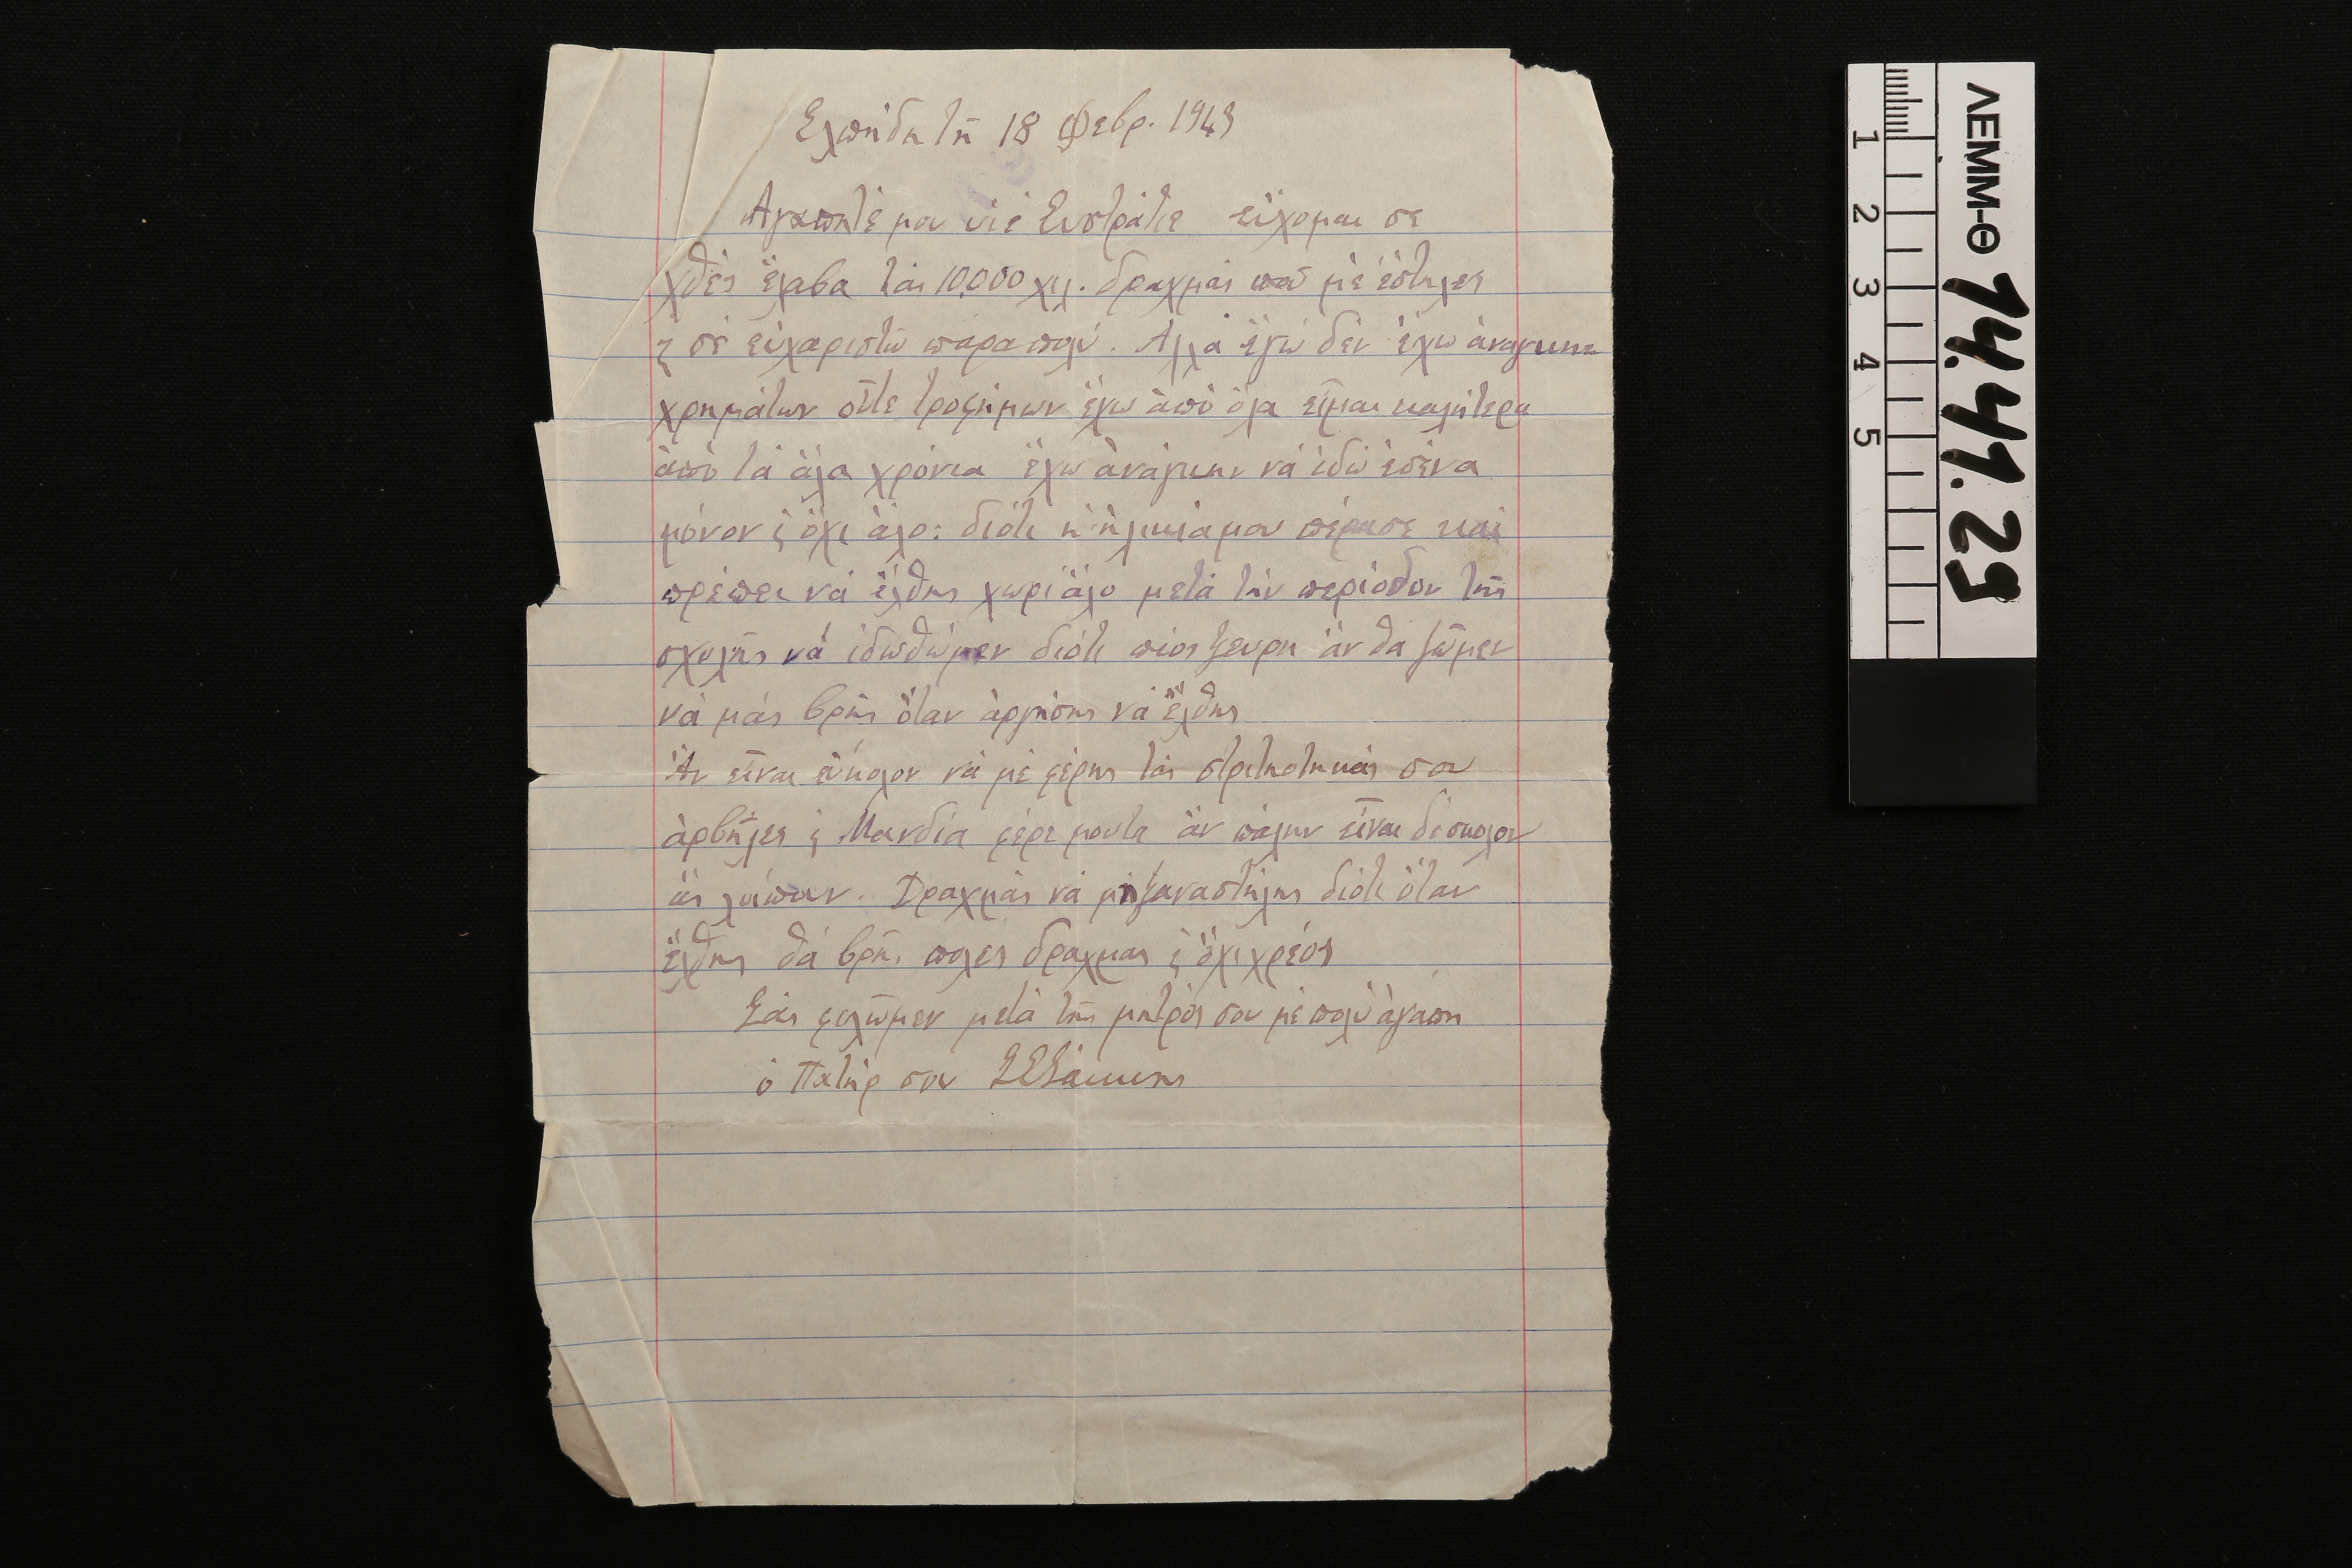 Ελπήδα τῆ 18 Φεβρ. 1943
Αγαπητέ μου υἱέ Ευστράτιε εὔχομαι σε
χθές ἔλαβα τάς 10,000 χιλ. δραχμάς ποῦ μὲ ἔστηλες
ϗ σέ εὐχαριστῶ πάρα πολύ. Αλλά ἔγώ δέν ἔχω ἀναγκην
χρημάτων οὔτε τροφήμων ἔχω ἀπό ὅλα εἶμαι καλήτερα
ἀπό τά ἄλα χρόνια ἔχω ἀνάγκην νά ἰδῶ ἐσένα
μόνον ϗ ὄχι ἄλο: διότι ἡ ἡλικία μου πέρασε καί
πρέπει νά ἔλθης χωρίἄλο μετά τήν περίοδον τῆς
σχολῆς νά ἰδωθῶμεν διότι πίος ξευρη ἄν θα ζῶμεν
νά μάς βρῆς ὅταν ἀργήσης νά ἔλθης
Ἄν εἶναι εὔκολον νά μέ φέρης τάς στρατιοτικάς σου
ἀρβῆλες ϗ Μανδία φέρε μουτα ἄν πάλην εἶναι δύσκολον
ἄς λοίπουν. Δραχμάς νά μήξαναστήλης διότι ὅταν
ἔλθης θά βρῆς πολες δραχμας ϗ ὄχι χρέος
Σάς φιλῶμεν μετά τῆς μητρός σου μέ πολύ ἀγάπη
ὁ Πατήρ σου
ΛΕΜΜ-Θ 14,41.25
1 2 3 4 5